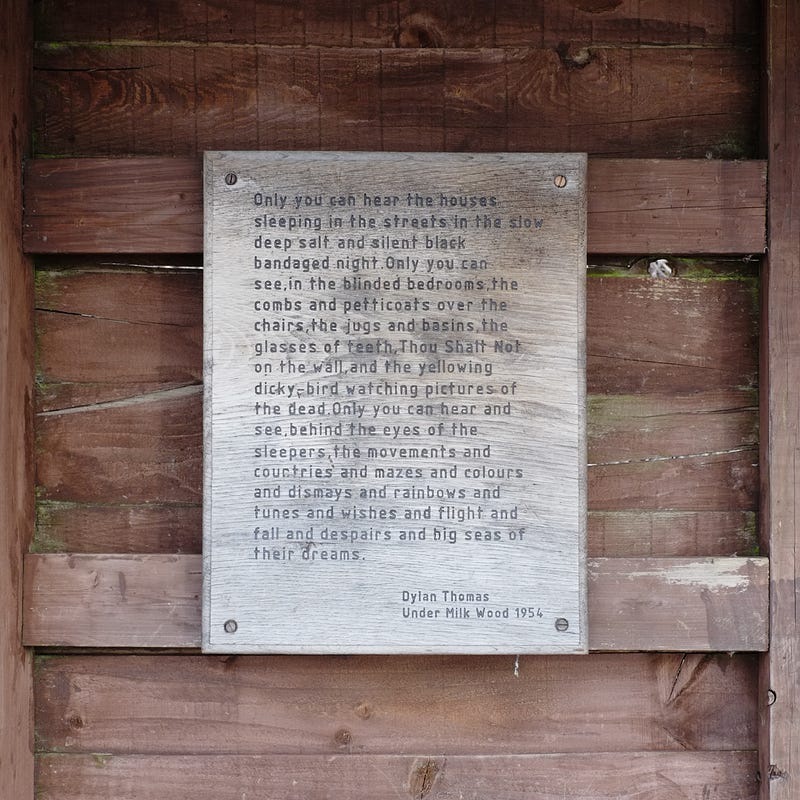 Only you can hear the houses
sleeping in the streets in the slow
deep salt and silent black
bandaged night.Only you can
see,in the blinded bedrooms,the
combs and petticoats over the
chairs,the jugs and basins,the
glasses of teeth,Thou Shalt Not
on the wall,and the yellowing
dicky-bird watching pictures of
the dead.Only you can hear and
see,behind the eyes of the
sleepers,the movements and
countries and mazes and colours
and dismays and rainbows and
tunes and wishes and flight and
fall and despairs and big seas of
their dreams.
Dylan Thomas
Under Milk Wood 1954